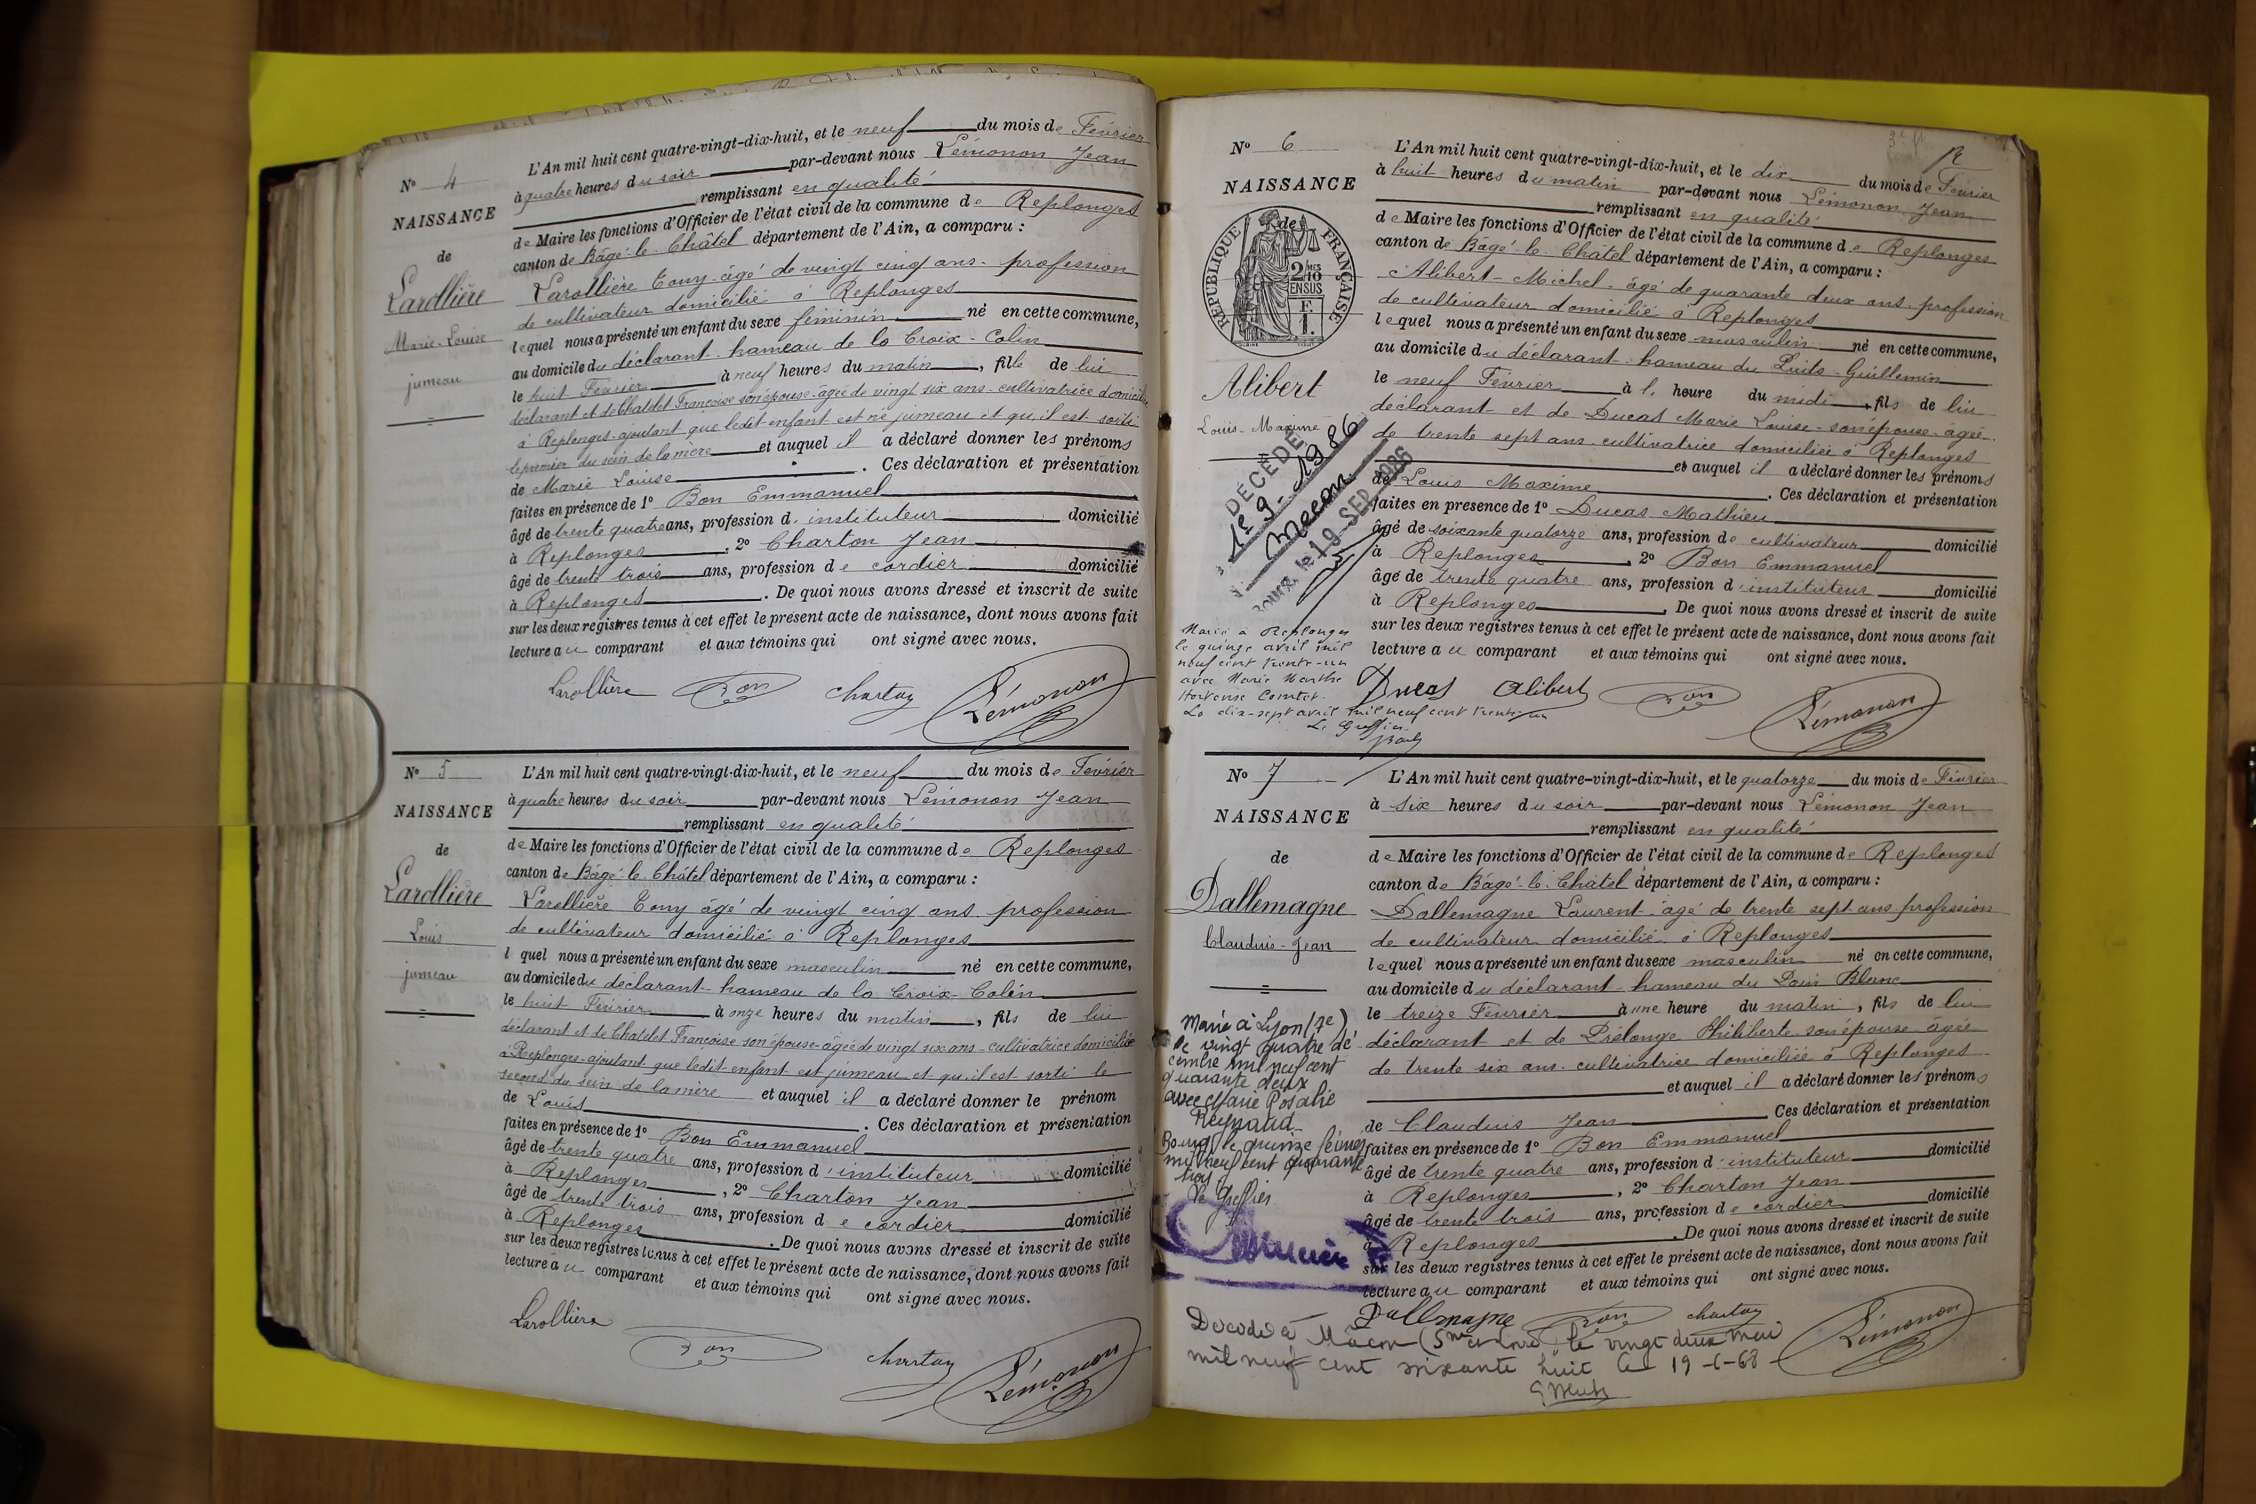 N° 4
NAISSANCE
de
Larollière
Marie-Louise
jumeau
L'An mil huit cent quatre-vingt-dix-huit, et le neuf du mois de Février
à quatre heures du soir par-devant nous Lémonon Jean
remplissant en qualité
de Maire les fonctions d'Officier de l'état civil de la commune de Replonges
canton de Bâgé-le-Châtel département de l'Ain, a comparu :
Larollière Tony âgé de vingt cinq ans profession
de cultivateur domicilié à Replonges
lequel nous a présenté un enfant du sexe féminin né en cette commune,
au domicile du déclarant hameau de la Croix-Colin
le huit Février à neuf heures du matin, fille de lui
déclarant et de Chatelet Françoise son épouse âgée de vingt six ans cultivatrice domiciliée
à Replonges ajoutant que ledit enfant est né jumeau et qu'il est sorti
le premier du sein de la mère et auquel il a déclaré donner les prénoms
de Marie Louise. Ces déclaration et présentation
faites en présence de 1° Bon Emmanuel
âgé de trente quatre ans, profession d'instituteur domicilié
à Replonges, 2° Charton Jean
âgé de trente trois ans, profession de cordier domicilié
à Replonges. De quoi nous avons dressé et inscrit de suite
sur les deux registres tenus à cet effet le présent acte de naissance, dont nous avons fait
lecture au comparant et aux témoins qui ont signé avec nous.
Larollière Bon Charton Lémonon
N° 5
NAISSANCE
de
Larollière
Louis
jumeau
L'An mil huit cent quatre-vingt-dix-huit, et le neuf du mois de Février
à quatre heures du soir par-devant nous Lémonon Jean
remplissant en qualité
de Maire les fonctions d'Officier de l'état civil de la commune de Replonges
canton de Bâgé-le-Châtel département de l'Ain, a comparu :
Larollière Tony âgé de vingt cinq ans profession
de cultivateur domicilié à Replonges
l quel nous a présenté un enfant du sexe masculin né en cette commune,
au domicile du déclarant hameau de la Croix-Colin
le huit Février à onze heures du matin, fils de lui
déclarant et de Chatelet Françoise son épouse âgée de vingt six ans cultivatrice domiciliée
à Replonges ajoutant que ledit enfant est jumeau et qu'il est sorti le
second du sein de la mère et auquel il a déclaré donner le prénom
de Louis. Ces déclaration et présentation
faites en présence de 1° Bon Emmanuel
âgé de trente quatre ans, profession d'instituteur domicilié
à Replonges, 2° Charton Jean
âgé de trente trois ans, profession de cordier domicilié
à Replonges. De quoi nous avons dressé et inscrit de suite
sur les deux registres tenus à cet effet le présent acte de naissance, dont nous avons fait
lecture au comparant et aux témoins qui ont signé avec nous.
Larollière Bon Charton Lémonon
N° 6
NAISSANCE
de
RÉPUBLIQUE FRANÇAISE
2/10 EN SUS
F. 1.
Alibert
Louis-Maxime
DÉCÉDÉ
1e 9-1986
Macon
le 19 SEP. 1986
Marié à Replonges
le quinze avril mil
neuf cent trente-un
avec Marie Marthe
Hortense Comtet.
Le dix-sept avril mil neuf cent trente-un
Le Greffier
L'An mil huit cent quatre-vingt-dix-huit, et le dix du mois de Février
à huit heures du matin par-devant nous Lémonon Jean
remplissant en qualité
de Maire les fonctions d'Officier de l'état civil de la commune de Replonges
canton de Bâgé-le-Châtel département de l'Ain, a comparu :
Alibert Michel âgé de quarante deux ans profession
de cultivateur domicilié à Replonges
lequel nous a présenté un enfant du sexe masculin né en cette commune,
au domicile du déclarant hameau du Puits-Guillemin
le neuf Février à 1. heure du midi, fils de lui
déclarant et de Ducas Marie Louise son épouse âgée
de trente sept ans cultivatrice domiciliée à Replonges
et auquel il a déclaré donner les prénoms
de Louis Maxime. Ces déclaration et présentation
faites en présence de 1° Ducas Mathieu
âgé de soixante quatorze ans, profession de cultivateur domicilié
à Replonges, 2° Bon Emmanuel
âgé de trente quatre ans, profession d'instituteur domicilié
à Replonges. De quoi nous avons dressé et inscrit de suite
sur les deux registres tenus à cet effet le présent acte de naissance, dont nous avons fait
lecture au comparant et aux témoins qui ont signé avec nous.
Ducas Alibert Bon Lémonon
N° 7
NAISSANCE
de
Dallemagne
Claudius-Jean
Marié à Lyon (7e)
le vingt quatre dé
cembre mil neuf cent
quarante deux
avec Marie Rosalie
Reynaud.
Bourg le quinze février
mil neuf cent quarante
trois
Le Greffier
L'An mil huit cent quatre-vingt-dix-huit, et le quatorze du mois de Février
à six heures du soir par-devant nous Lémonon Jean
remplissant en qualité
de Maire les fonctions d'Officier de l'état civil de la commune de Replonges
canton de Bâgé-le-Châtel département de l'Ain, a comparu :
Dallemagne Laurent âgé de trente sept ans profession
de cultivateur domicilié à Replonges
lequel nous a présenté un enfant du sexe masculin né en cette commune,
au domicile du déclarant hameau du Pain Blanc
le treize Février à une heure du matin, fils de lui
déclarant et de Prélonge Philiberte son épouse âgée
de trente six ans cultivatrice domiciliée à Replonges
et auquel il a déclaré donner les prénoms
de Claudius Jean Ces déclaration et présentation
faites en présence de 1° Bon Emmanuel
âgé de trente quatre ans, profession d'instituteur domicilié
à Replonges, 2° Charton Jean
âgé de trente trois ans, profession de cordier domicilié
à Replonges. De quoi nous avons dressé et inscrit de suite
sur les deux registres tenus à cet effet le présent acte de naissance, dont nous avons fait
lecture au comparant et aux témoins qui ont signé avec nous.
Dallemagne Bon Charton Lémonon
Décédé à Mâcon (Sne et Loire) le vingt deux mai
mil neuf cent soixante huit le 19-6-68